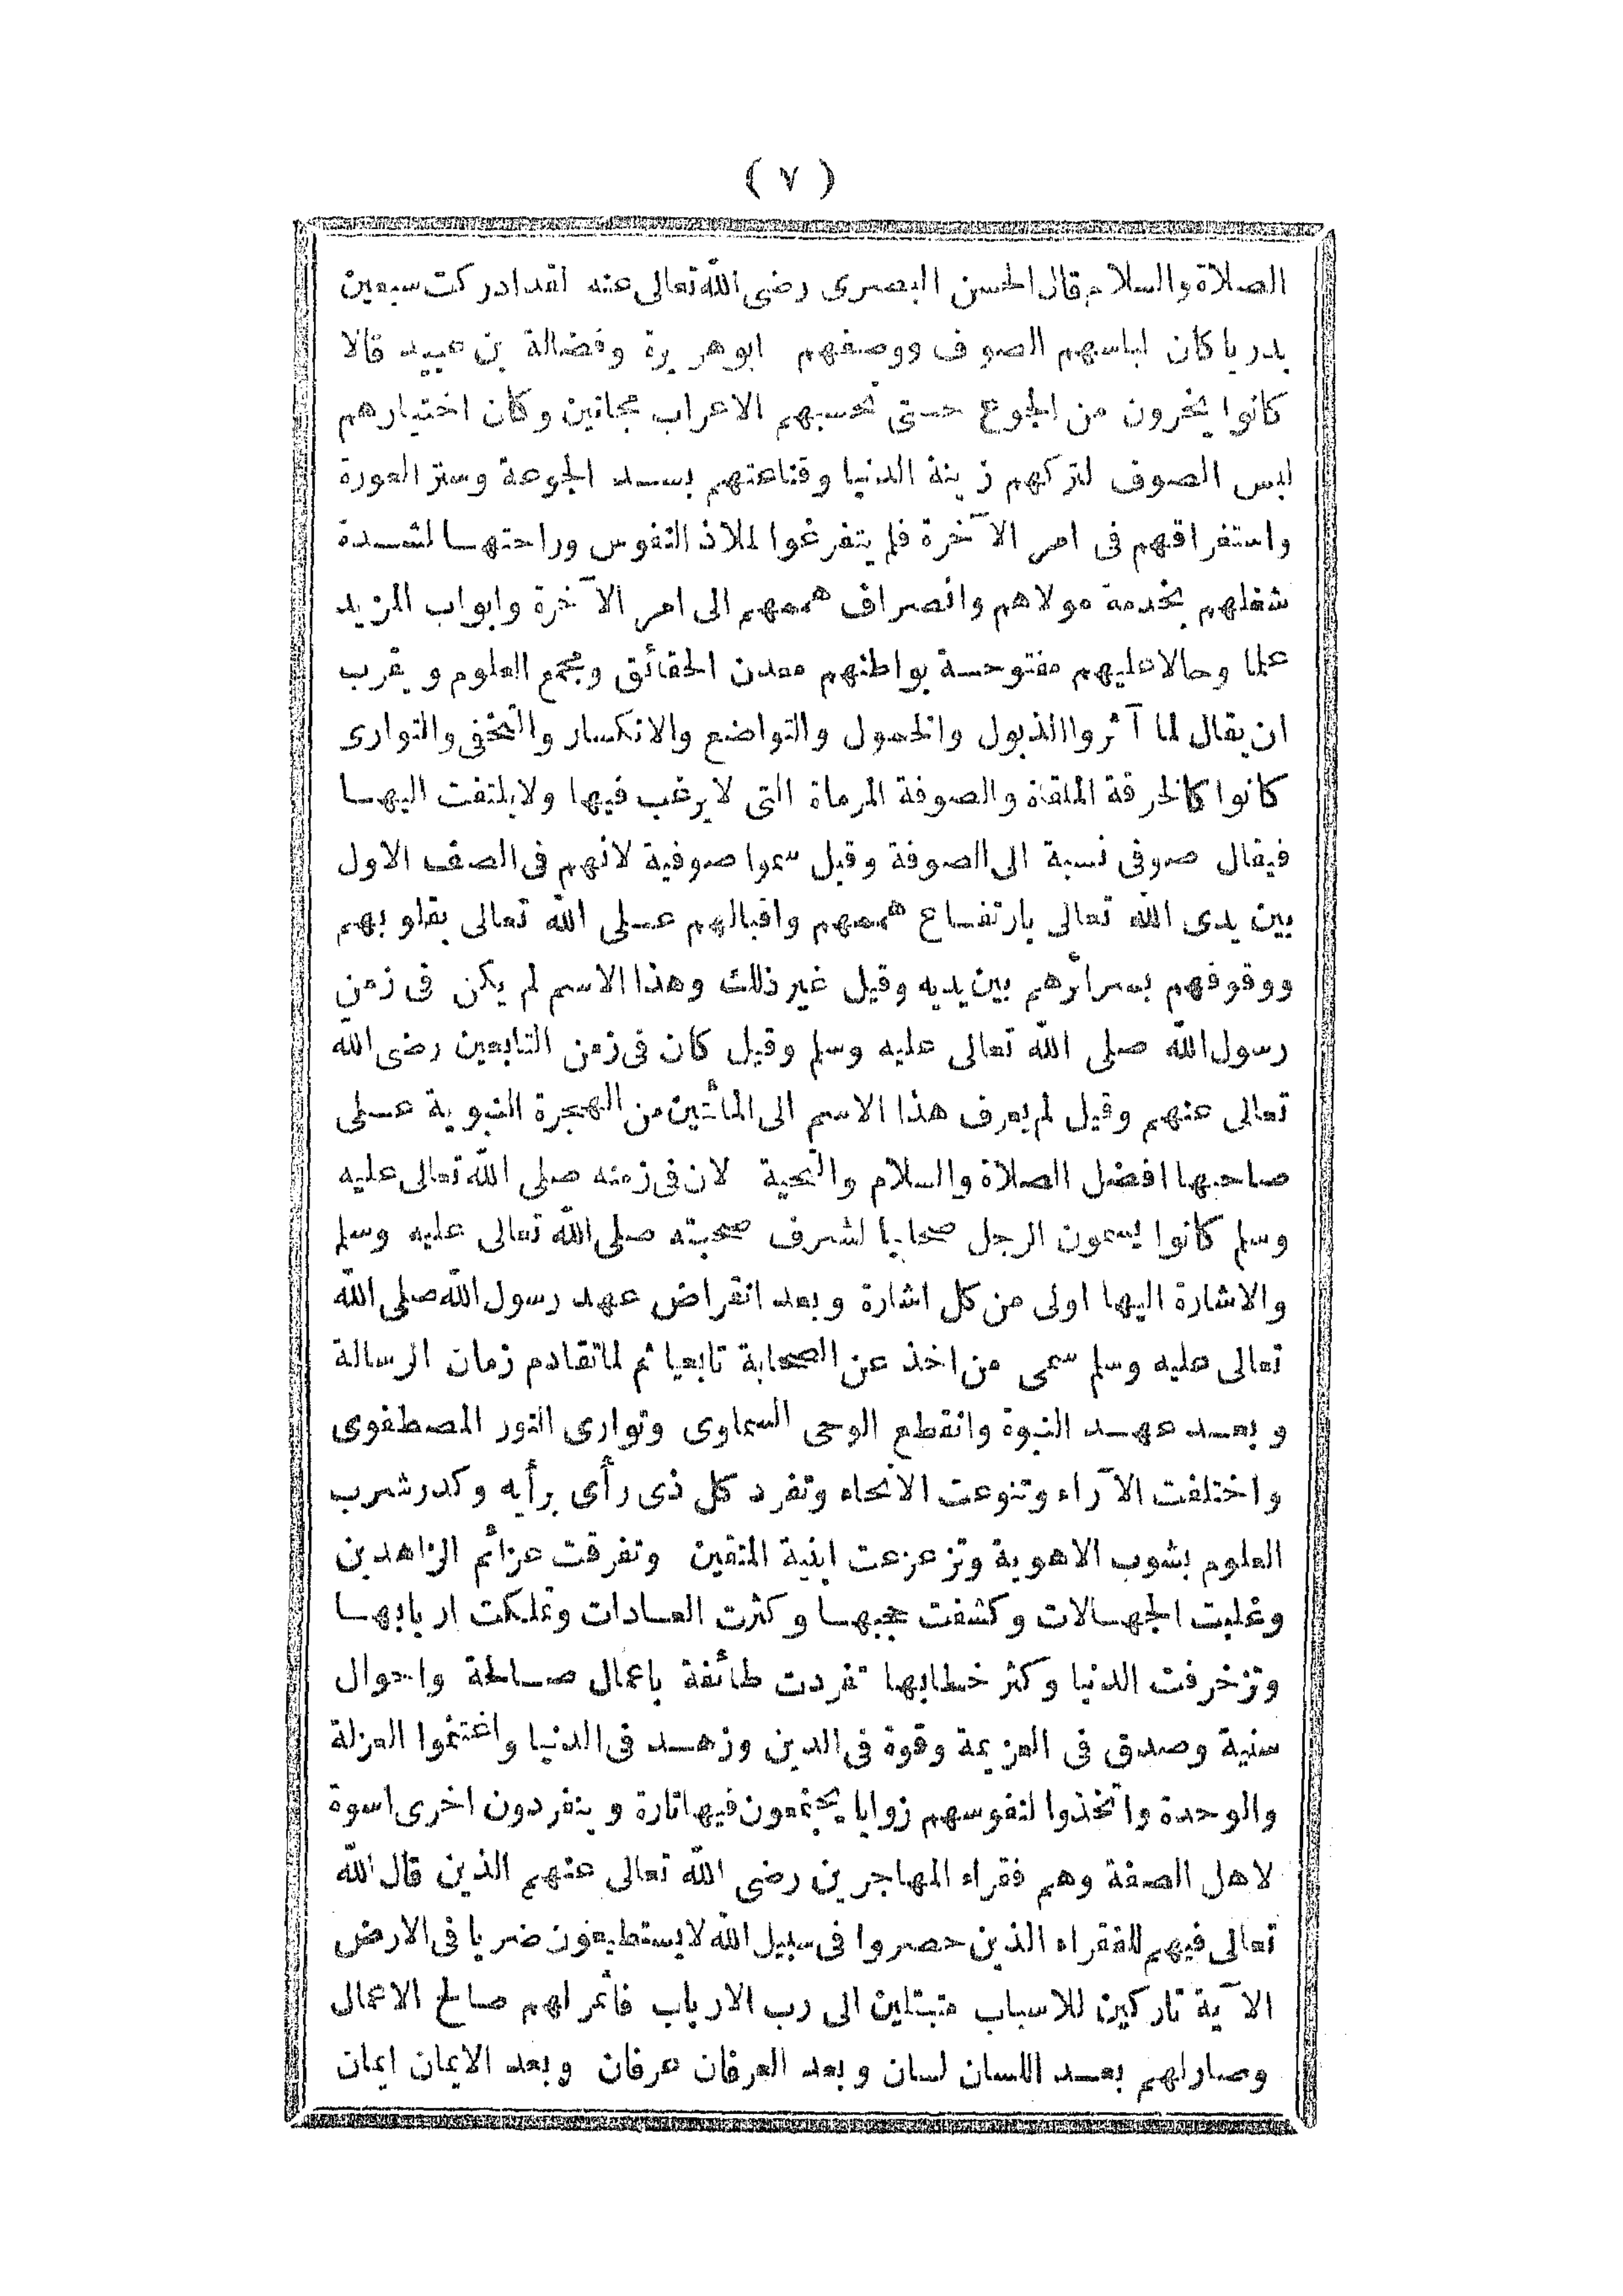 ( ٧ )
الصلاة والسلام قال الحسن البصرى رضى الله تعالى عنه لقد ادركت سبعين
بدريا كان لباسهم الصوف ووصفهم ابو هريرة وفضالة بن عبيد قالا
كانوا يخرون من الجوع حتى تحسبهم الاعراب مجانين وكان اختيارهم
لبس الصوف لتركهم زينة الدنيا وقناعتهم بسد الجوعة وستر العورة
واستغراقهم فى امر الآخرة فلم يتفرغوا لملاذ النفوس وراحتها لشدة
شغلهم بخدمة مولاهم وانصراف هممهم الى امر الآخرة وابواب المزيد
علما وحالا عليهم مفتوحة بواطنهم معدن الحقائق ومجمع العلوم ويقرب
ان يقال لما آثروا الذبول والخمول والتواضع والانكسار والتخفى والتوارى
كانوا كالخرقة الملقاة والصوفة المرماة التى لا يرغب فيها ولا يلتفت اليها
فيقال صوفى نسبة الى الصوفة وقيل سموا صوفية لانهم فى الصف الاول
بين يدى الله تعالى بارتفاع هممهم واقبالهم على الله تعالى بقلوبهم
ووقوفهم بسرائرهم بين يديه وقيل غير ذلك وهذا الاسم لم يكن فى زمن
رسول الله صلى الله تعالى عليه وسلم وقيل كان فى زمن التابعين رضى الله
تعالى عنهم وقيل لم يعرف هذا الاسم الى المأتين من الهجرة النبوية على
صاحبها افضل الصلاة والسلام والتحية لان فى زمنه صلى الله تعالى عليه
وسلم كانوا يسمون الرجل صحابيا لشرف صحبته صلى الله تعالى عليه وسلم
والاشارة اليها اولى من كل اشارة وبعد انقراض عهد رسول الله صلى الله
تعالى عليه وسلم سمى من اخذ عن الصحابة تابعيا ثم لما تقادم زمان الرسالة
وبعد عهد النبوة وانقطع الوحى السماوى وتوارى النور المصطفوى
واختلفت الآراء وتنوعت الانحاء وتفرد كل ذى رأى برأيه وكدر شرب
العلوم بشوب الاهوية وتزعزعت ابنية المتقين وتفرقت عزائم الزاهدين
وغلبت الجهالات وكشفت حجبها وكثرت العادات وتملكت اربابها
وتزخرفت الدنيا وكثر خطابها تفردت طائفة باعمال صالحة واحوال
سنية وصدق فى العزيمة وقوة فى الدين وزهد فى الدنيا واغتنموا العزلة
والوحدة واتخذوا لنفوسهم زوايا يجتمعون فيها تارة وينفردون اخرى اسوة
لاهل الصفة وهم فقراء المهاجرين رضى الله تعالى عنهم الذين قال الله
تعالى فيهم للفقراء الذين حصروا فى سبيل الله لا يستطيعون ضربا فى الارض
الآية تاركين للاسباب متبتلين الى رب الارباب فأثمر لهم صالح الاعمال
وصار لهم بعد اللسان لسان وبعد العرفان عرفان وبعد الايمان ايمان